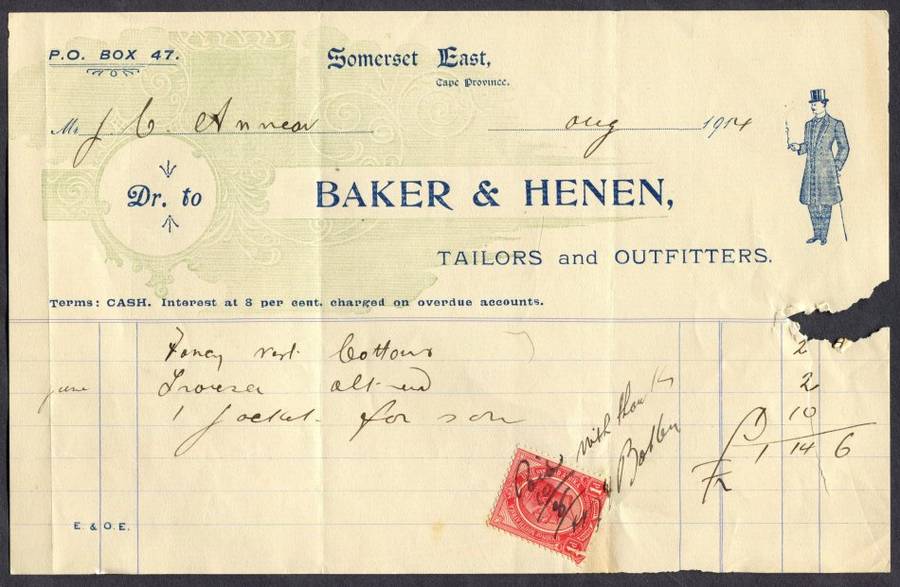 P.O. BOX 47.
Somerset East,
Cape Province.
Mr J. C. Annear
Aug 1914
Dr. to
BAKER & HENEN,
TAILORS and OUTFITTERS.
Terms: CASH. Interest at 8 per cent. charged on overdue accounts.
Fancy vest Cottons 2
June Trouser altered 2
1 Jacket for son 10
1 14 6
with thanks
E. & O.E.